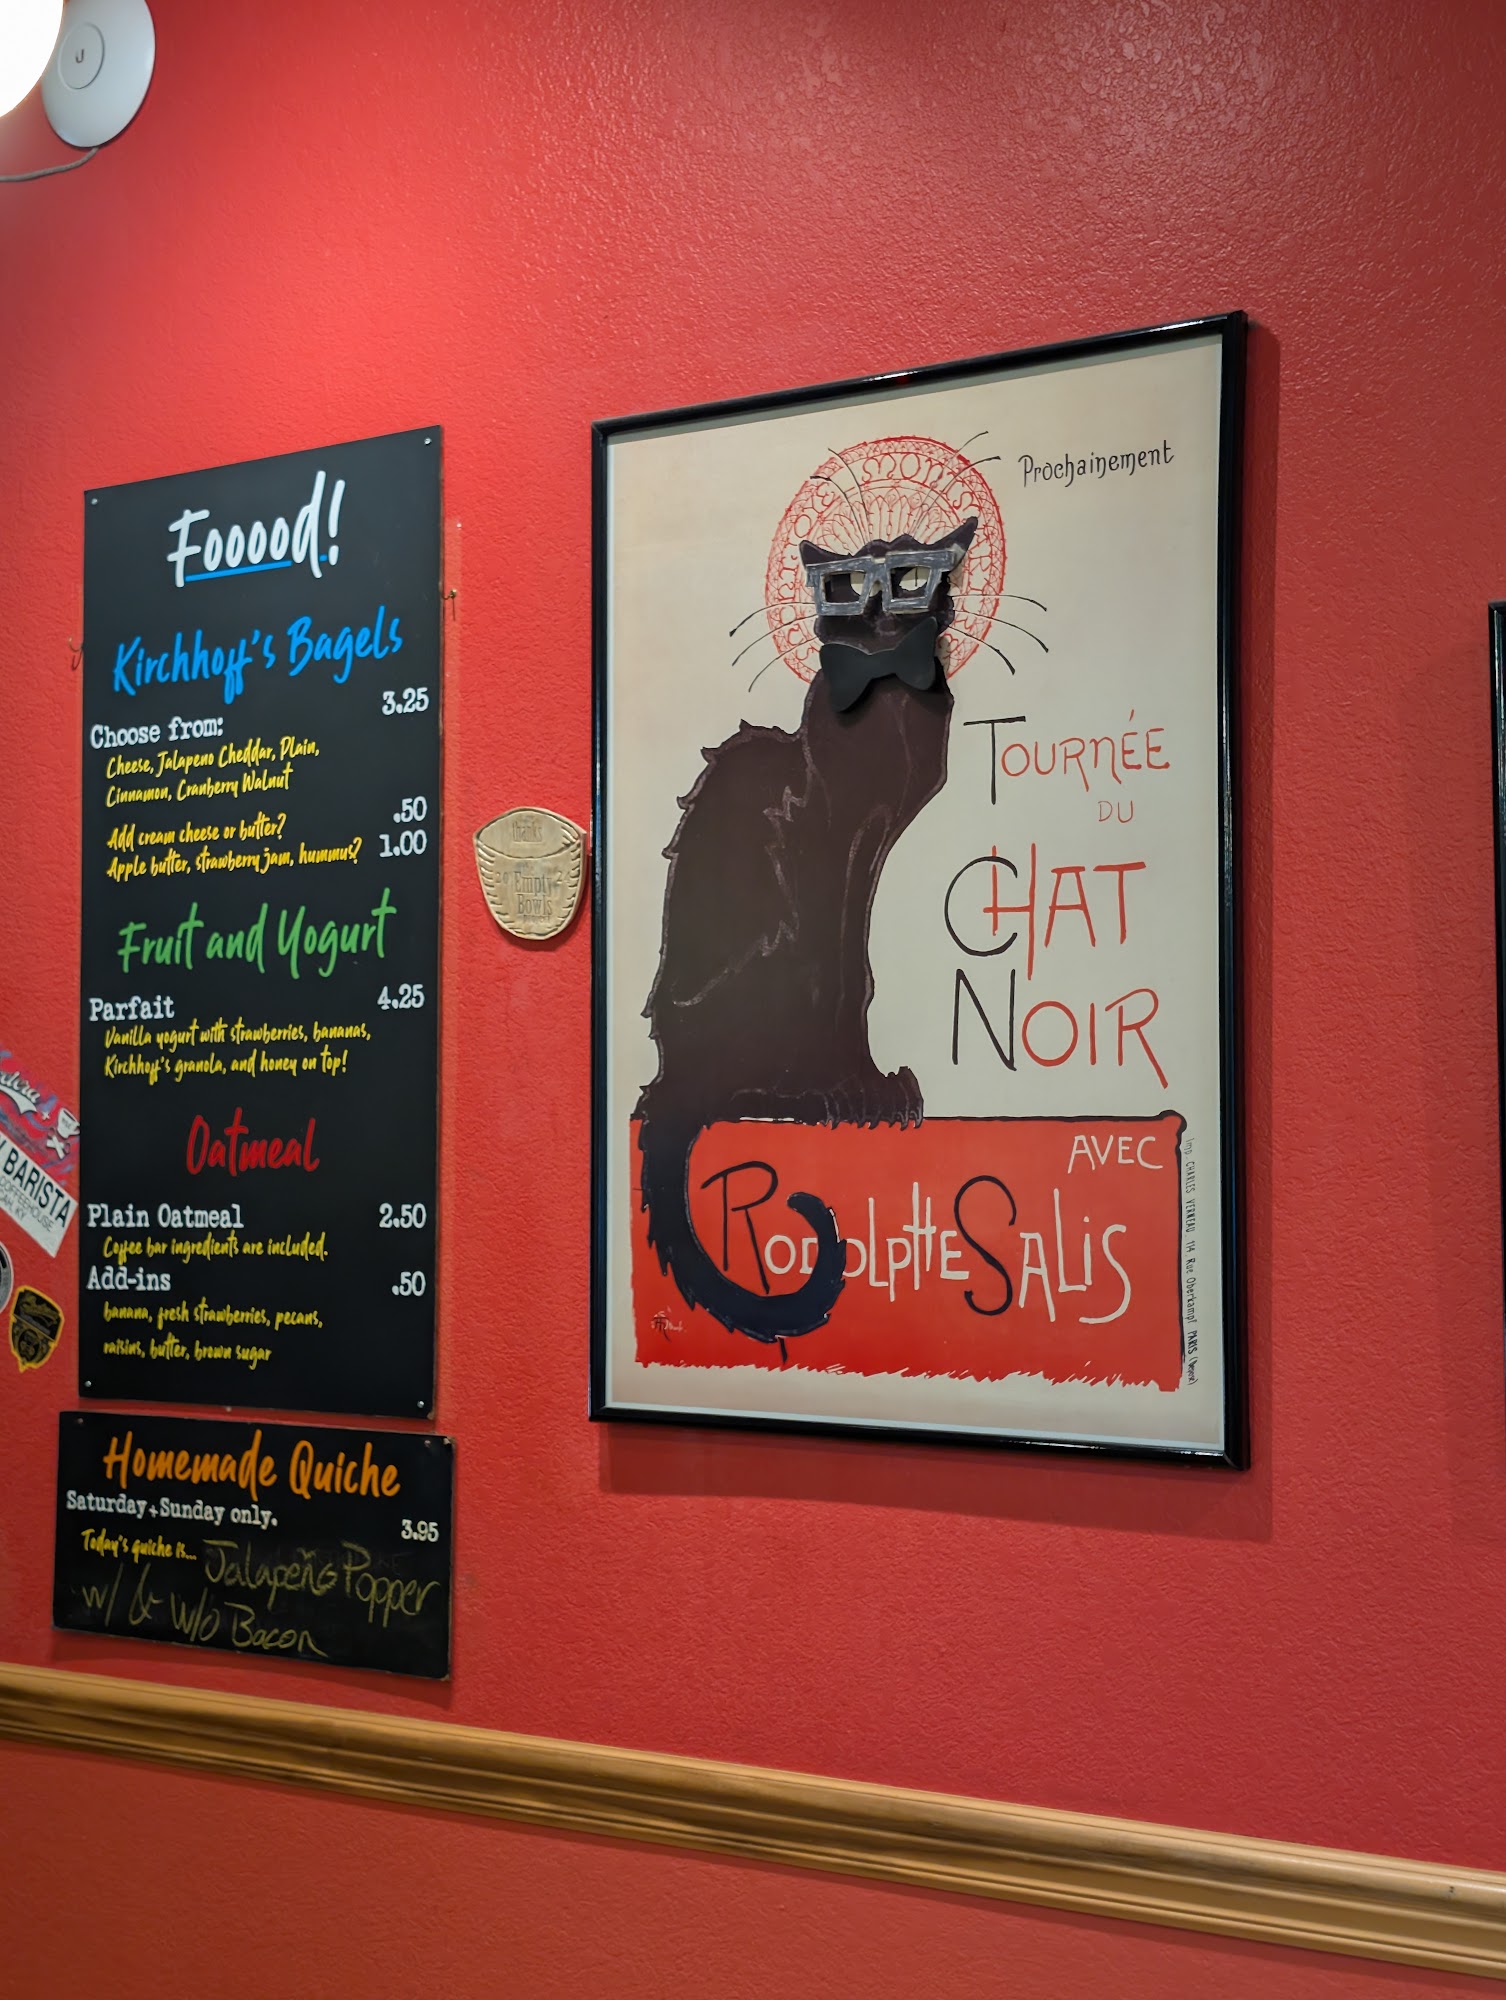 Fooood!
Kirchhoff's Bagels
3.25
Choose from:
Cheese, Jalapeno Cheddar, Plain,
Cinnamon, Cranberry Walnut
Add cream cheese or butter? .50
Apple butter, strawberry jam, hummus? 1.00
Fruit and Yogurt
Parfait 4.25
Vanilla yogurt with strawberries, bananas,
Kirchhoff's granola, and honey on top!
Oatmeal
Plain Oatmeal 2.50
Coffee bar ingredients are included.
Add-ins .50
banana, fresh strawberries, pecans,
raisins, butter, brown sugar
Homemade Quiche
Saturday + Sunday only.
3.95
Today's quiche is... Jalapeño Popper
w/ & w/o Bacon
BARISTA
COFFEEHOUSE
KY
thanks
Empty
Bowls
Prochainement
TOURNÉE
DU
CHAT
NOIR
AVEC
RODOLPHE SALIS
Imp. CHARLES VERNEAU. 114, Rue Oberkampf. PARIS
U